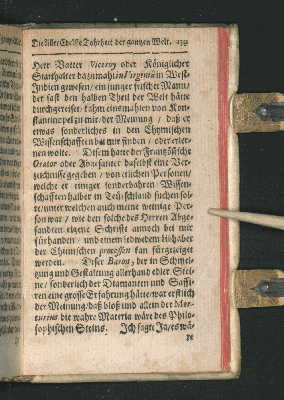 Die Aller Edelste Tohrheit der gantzen Welt. 239
Herr Vatter Viceroy oder Königlicher
Statthalter dazumahl in Virginia in West-
Indien gewesen / ein junger frischer Mann /
der fast den halben Theil der Welt hätte
durchgereiset / kahm eins mahles von Kon-
stantinopel zu mir / der Meinung / daß er
etwas sonderliches in den Chymischen
Wissenschafften bei mir finden / oder erler-
nen wolte. Disem hatte der Frantzösische
Orator oder Abgesanter daselbst eine Ver-
zeichnisse gegeben / von etlichen Personen /
welche er einiger sonderbahren Wissen-
schafften halber in Teutschland suchen sol-
te / unter welchen auch meine wenige Per-
son war / wie den solche des Herren Abge-
sandten eigene Schrifft annoch bei mir
fürhanden / und einem jedwedem Liebhaber
der Chimischen processen kan fürgezeiget
werden. Diser Baron, der in Schmel-
gung und Gestaltung allerhand edler Stei-
ne / sonderlich der Diamanten und Saffi-
ren eine grosse Erfahrung hätte / war erstlich
der Meinung / daß bloß und allein der Mer-
curius die wahre Materia wäre des Philo-
sophischen Steins. Ich sagte: Ja / es wä-
re